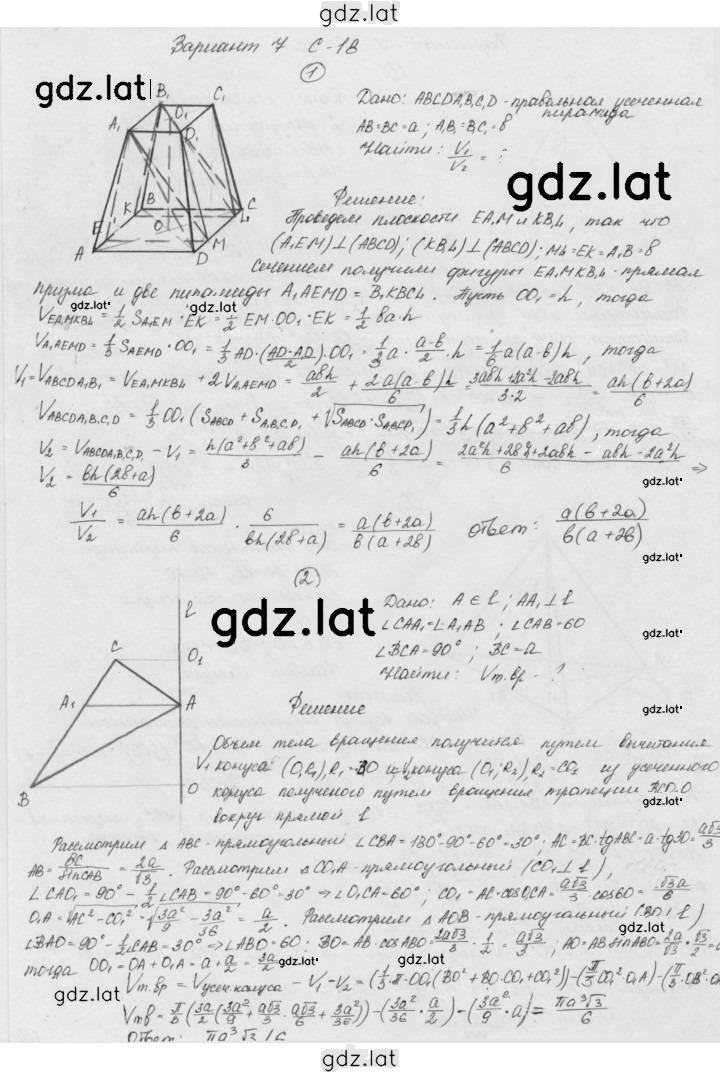 gdz.lat
Вариант 7 С-1В
gdz.lat
1
Дано: ABCDA₁B₁C₁D₁ - правильная усеченная пирамида
AB=BC=a; A₁B₁=B₁C₁=в
Найти: V₁/V₂ = ?
B₁ C₁ O₁ A₁ D₁ K B C L E O M A D
gdz.lat
Решение:
Проведем плоскости EA₁M и KB₁L, так что
(A₁EM)⊥(ABCD); (KB₁L)⊥(ABCD); ML=EK=A₁B=в
Сечением получили фигуры EA₁MKB₁L - прямая
призма и две пирамиды A₁AEMD = B₁KBCL. Пусть OO₁=h, тогда
gdz.lat gdz.lat
V_EA₁MKB₁L = 1/2 S_A₁EM · EK = 1/2 EM·OO₁·EK = 1/2 вa·h
V_A₁AEMD = 1/3 S_AEMD · OO₁ = 1/3 AD·(AD-A₁D₁/2)·OO₁ = 1/3 a · a-в/2 · h = 1/6 a(a-в)h, тогда
V₁=V_ABCDA₁B₁ = V_EA₁MKB₁L + 2V_A₁AEMD = aвh/2 + 2a(a-в)h/6 = 3aвh+2a²h-2aвh/3·2 = ah(в+2a)/6
V_ABCDA₁B₁C₁D₁ = 1/3 OO₁(S_ABCD + S_A₁B₁C₁D₁ + √S_ABCD·S_A₁B₁C₁D₁) = 1/3 h(a²+в²+aв), тогда
V₂ = V_ABCDA₁B₁C₁D₁ - V₁ = h(a²+в²+aв)/3 - ah(в+2a)/6 = 2a²h+2в²h+2aвh - aвh - 2a²h/6 ⇒
V₂ = вh(2в+a)/6
gdz.lat
V₁/V₂ = ah(в+2a)/6 · 6/вh(2в+a) = a(в+2a)/в(a+2в) Ответ: a(в+2a)/в(a+2в)
gdz.lat
2
gdz.lat
Дано: A∈l; AA₁⊥l
∠CAA₁=∠A₁AB; ∠CAB=60
∠BCA=90°; BC=a
Найти: Vт.вр - ?
gdz.lat
l C O₁ A₁ A B O
gdz.lat
Решение
Объем тела вращения получится путем вычитания
V₁ конуса (O,R₁), R₁=BO и V₂ конуса (O₁; R₂), R₂=CO₁ из усеченного
gdz.lat
конуса полученого путем вращения трапеции BCO₁O
вокруг прямой l
Рассмотрим △ABC - прямоугольный ∠CBA=180°-90°-60°=30°; AC=BC·tgABC=a·tg30=a√3/3
AB=BC/sinCAB = 2a/√3. Рассмотрим △CO₁A - прямоугольный (CO₁⊥l),
∠CAO₁=90°-1/2∠CAB=90°-60°=30° ⇒∠O₁CA=60°; CO₁=AC·cosO₁CA=a√3/3·cos60=√3a/6
O₁A=√AC²-CO₁²=√3a²/9-3a²/36=a/2. Рассмотрим △AOB - прямоугольный (BO⊥l)
∠BAO=90°-1/2∠CAB=30°⇒∠ABO=60; BO=AB·cosABO=2a√3/3·1/2=a√3/3; AO=AB·sinABO=2a/√3·√3/2=
тогда OO₁=OA+O₁A=a+a/2=3a/2
gdz.lat gdz.lat
Vт.вр = Vусеч.конуса - V₁-V₂=(1/3·π·OO₁(BO²+BO·CO₁+CO₁²))-(π/3CO₁²·O₁A)-(π/3·OB²·OA
gdz.lat
Vт.в=π/3(3a/2(3a²/9+a√3/3·a√3/6+3a²/36))-(3a²/36·a/2)-(3a²/9·a)=πa³√3/6
Ответ: πa³√3/6
gdz.lat